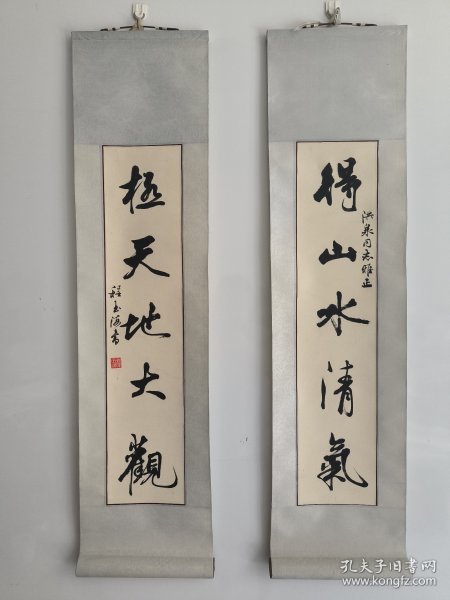 得山水清氣
洪泉同志雅正
極天地大觀
孔夫子旧书网
www.kongfz.com